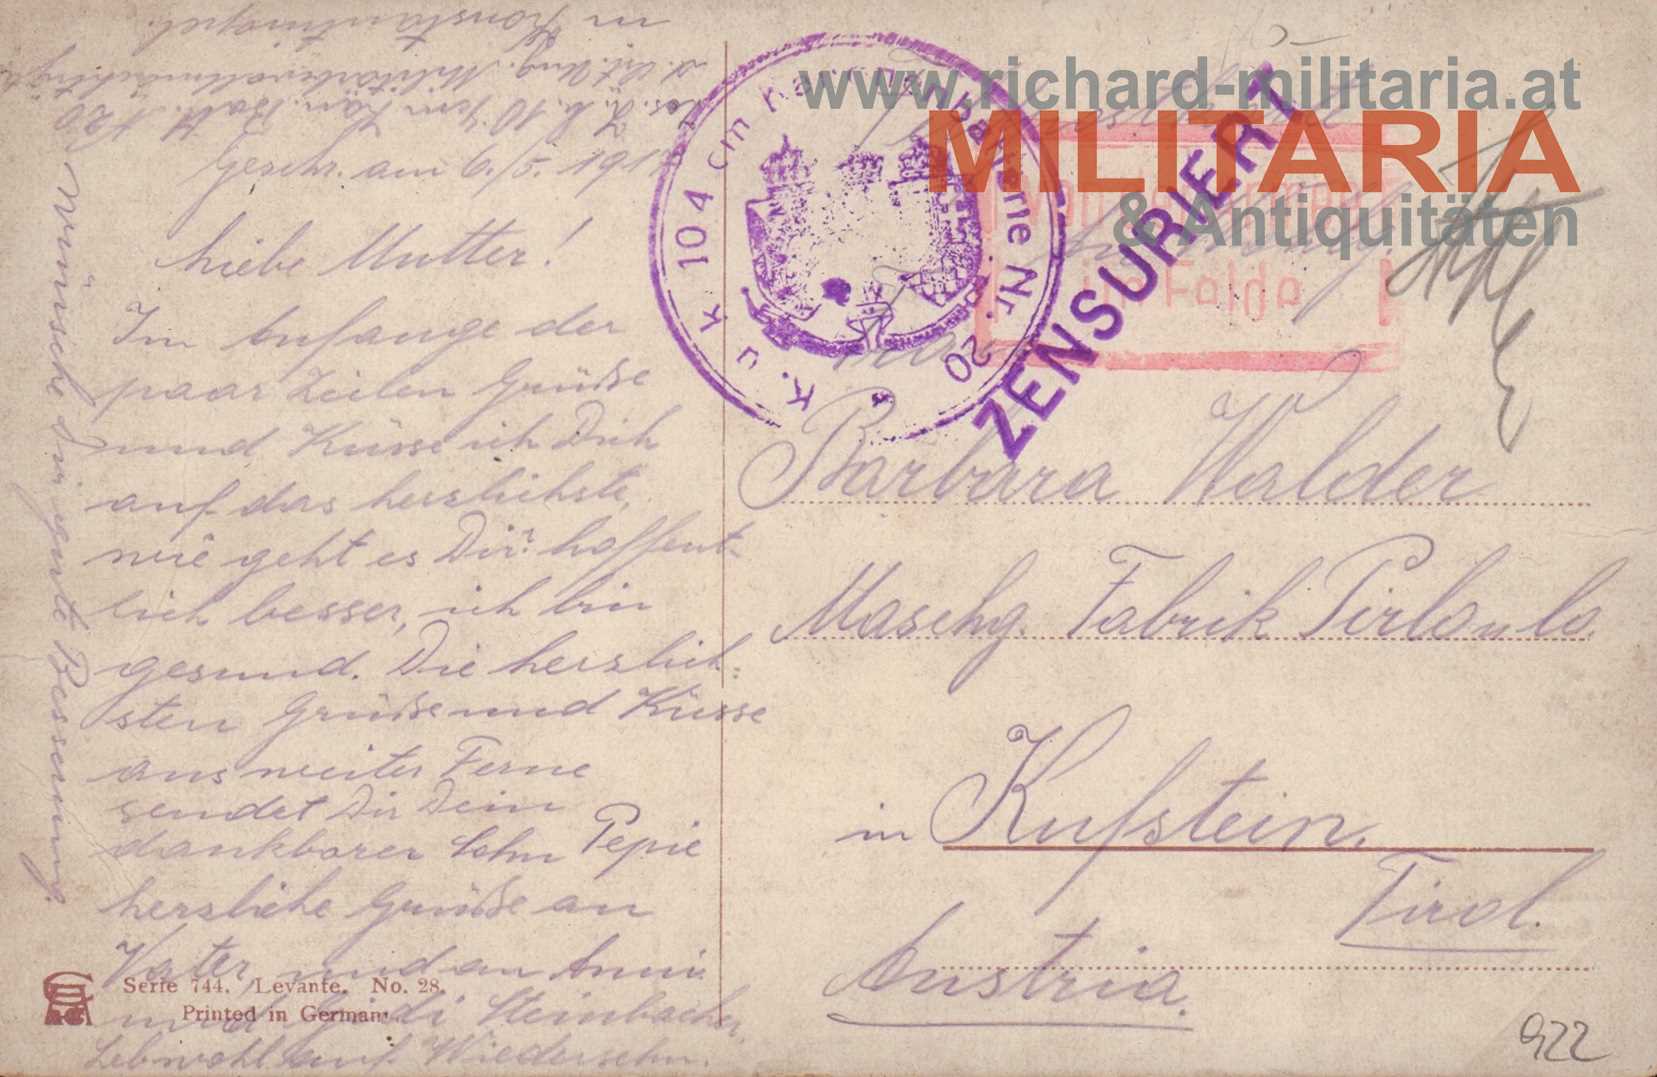 in Konstantinopel.
Geschr. am 6./5. 191
Liebe Mutter!
Im Anfange der
paar Zeilen Grüße
und Küsse ich Dich
auf das herzlichste,
wie geht es Dir? hoffent-
lich besser, ich bin
gesund. Die herzlich-
sten Grüße und Küsse
aus weiter Ferne
sendet Dir Dein
dankbarer Sohn Pepie
herzliche Grüße an
Vater und an Anni
und Steinbacher,
Lebwohl auf Wiedersehn.
wünsche Dir gute Besserung.
Serie 744. Levante. No. 28.
Printed in Germany
K. u K 10 4 cm Kanonenbatterie Nr. 20
ZENSURIERT
im Felde
www.richard-militaria.at
MILITARIA
& Antiquitäten
Barbara Walder
Maschg. Fabrik
in Kufstein.
Tirol.
Austria.
922